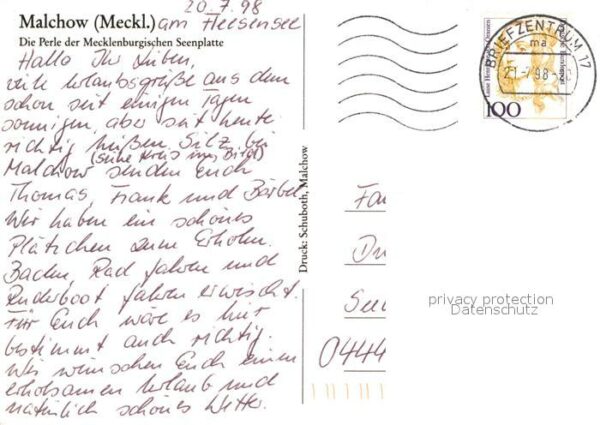 20.7.98
Malchow (Meckl.) am Fleesensee
Die Perle der Mecklenburgischen Seenplatte
Hallo Ihr Lieben,
viele Urlaubsgrüße aus dem
schon seit einigen Tagen
sonnigen, aber seit heute
richtig heißen Silz bei
(siehe Kreis im Bild)
Malchow senden euch
Thomas, Frank und Bärbel
Wir haben ein schönes
Plätzchen zum Erholen.
Baden, Rad fahren und
Ruderboot fahren erwischt.
Für Euch wäre es hier
bestimmt auch richtig.
Wir wünschen Euch einen
erholsamen Urlaub und
natürlich schönes Wetter.
Druck: Schuboth, Malchow
BRIEFZENTRUM 17
ma
21.-7.98
100
Fa
Dr
See
0444
privacy protection
Datenschutz